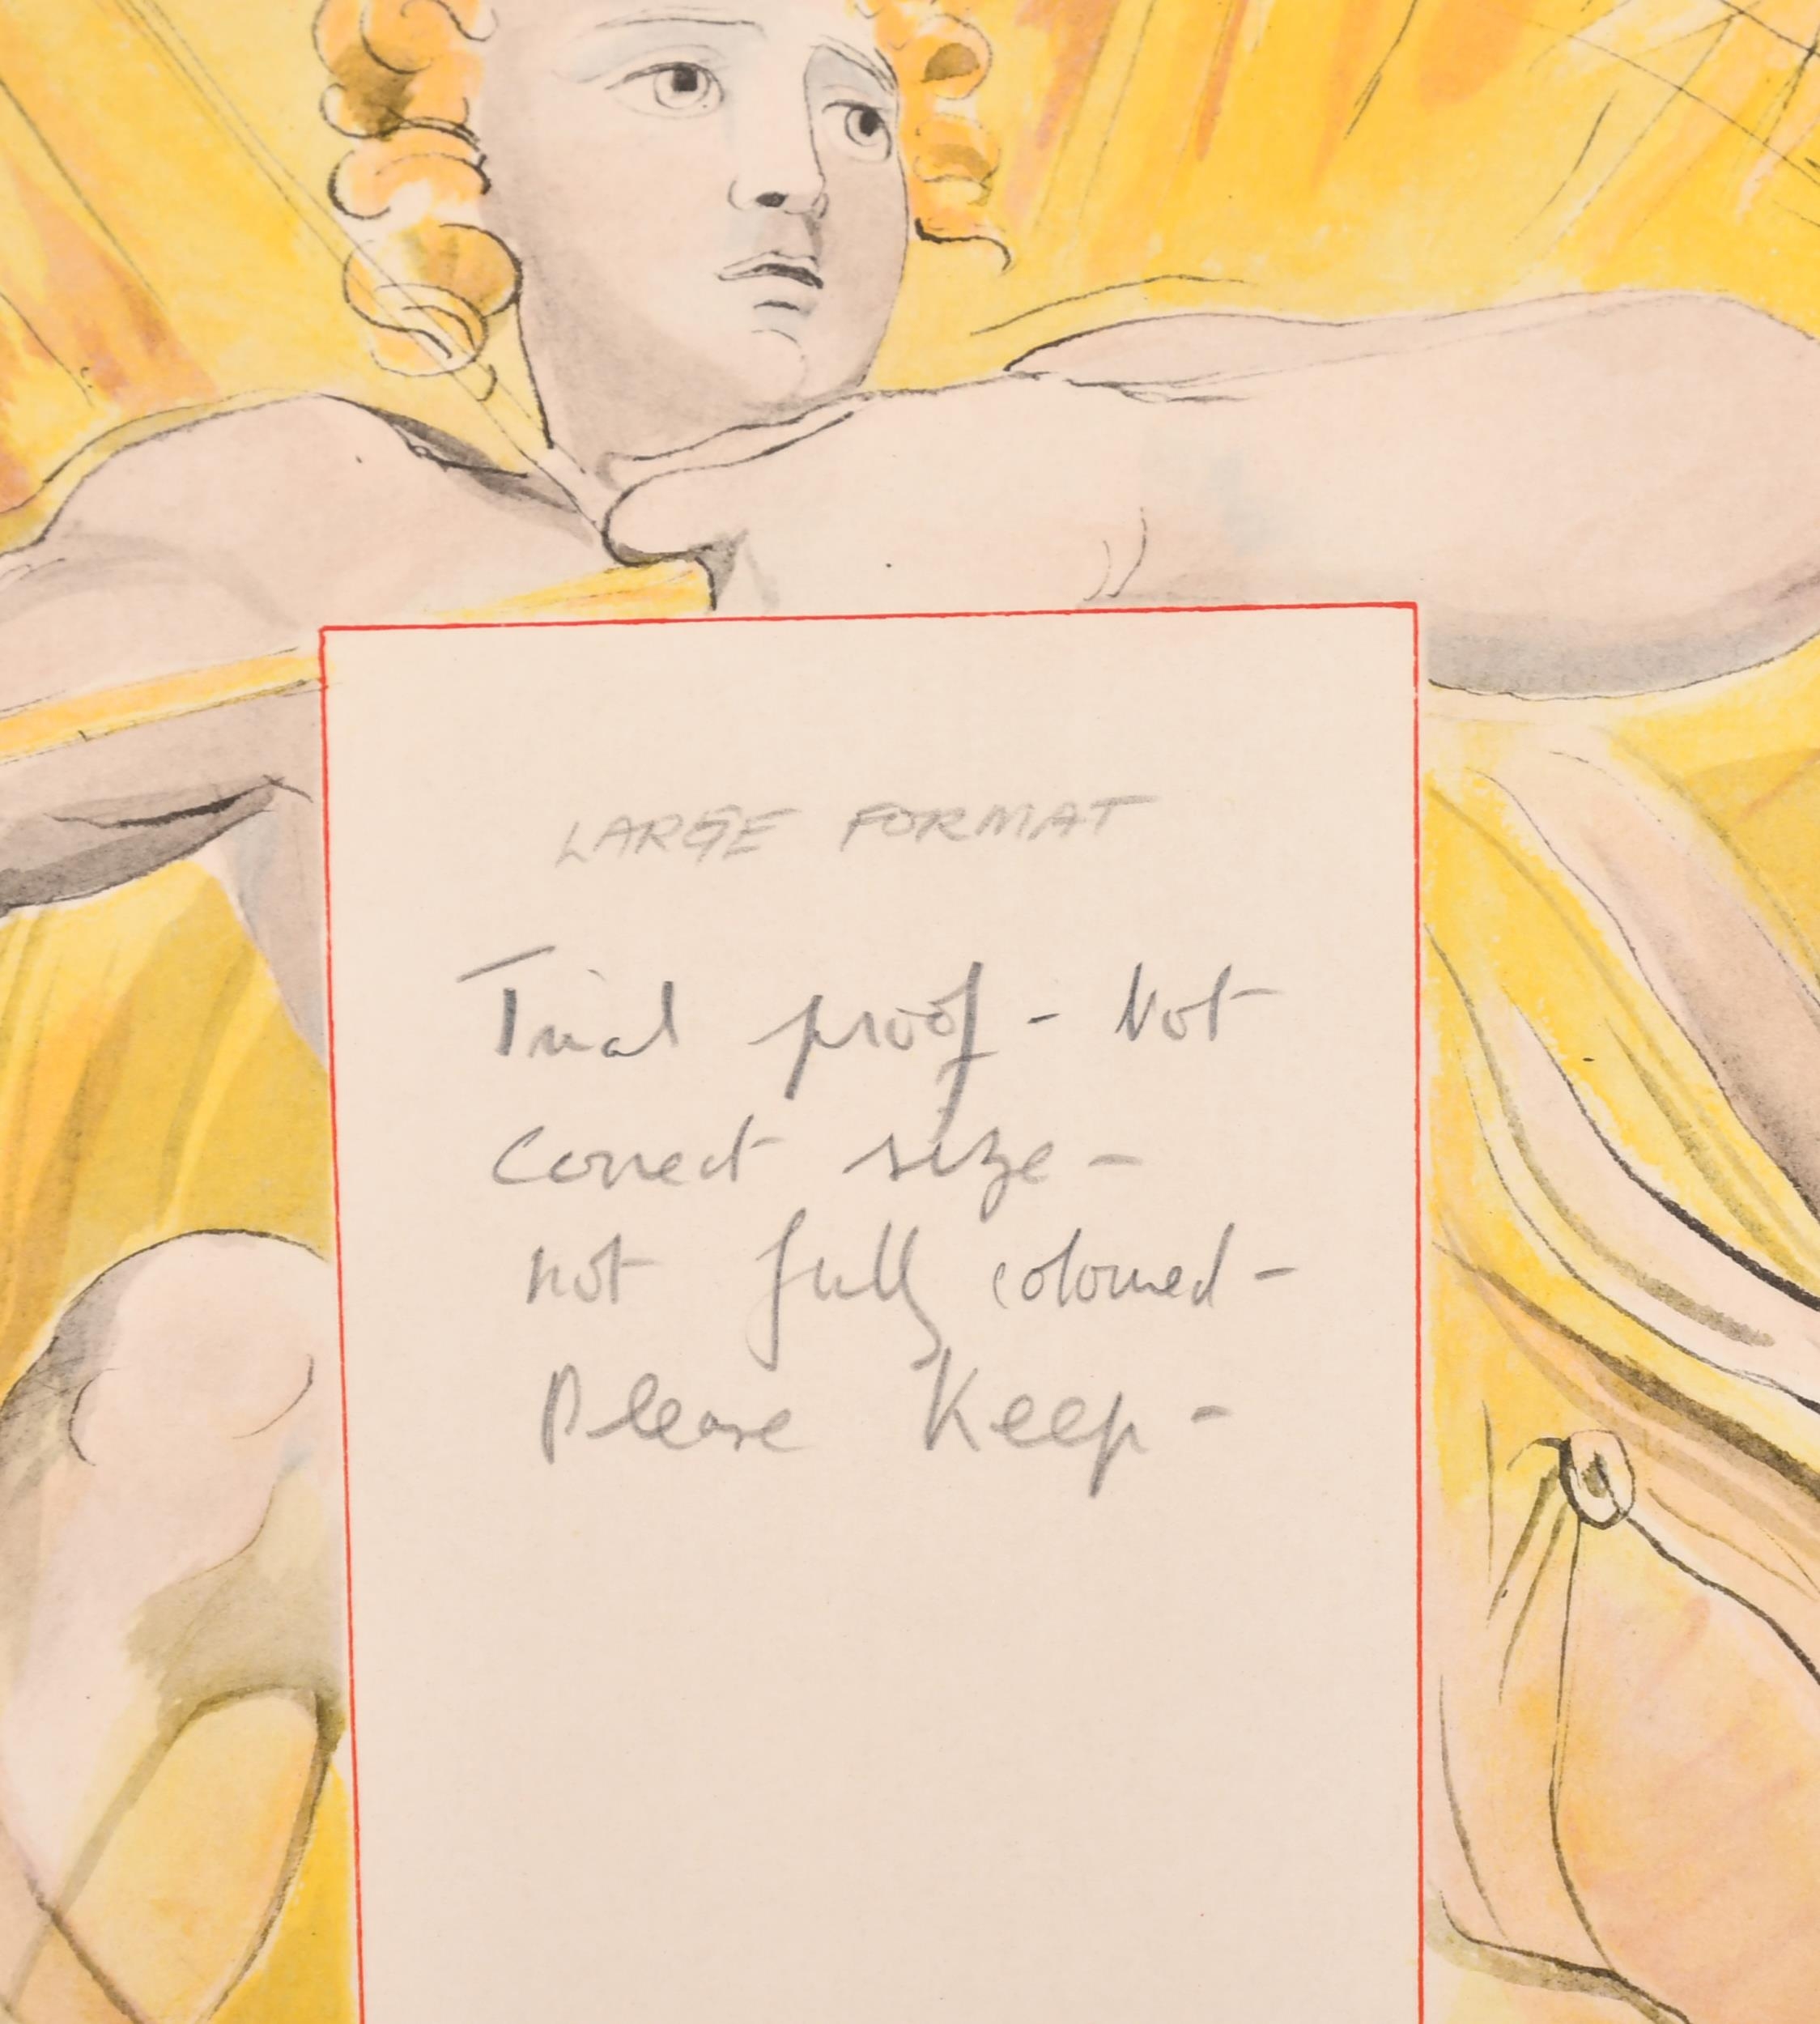 LARGE FORMAT
Trial proof - Not
Correct size -
not fully coloured -
Please Keep -